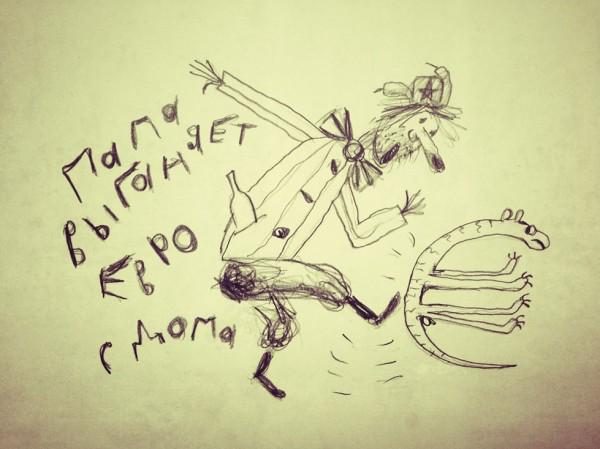 ПАПА
ВЫГАНЯЕТ
ЕВРО
С ДОМА